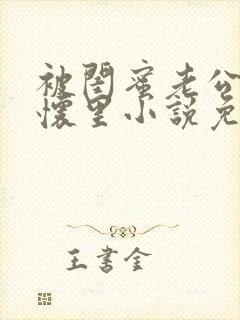 被闺蜜老公
怀里小说免
王书金